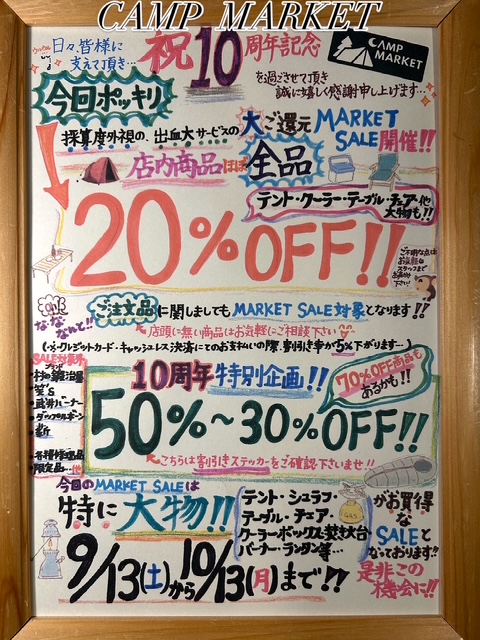 CAMP MARKET
日々、皆様に
支えて頂き…
祝10周年記念
CAMP
MARKET
を過ごさせて頂き
誠に嬉しく感謝申し上げます…
今回ポッキリ
採算度外視の、出血大サービスの
大ご還元 MARKET
SALE開催!!
店内商品ほぼ全品
テント・クーラー・テーブル・チェアー・他
大物も!!
20%OFF!!
ご不明な点は
お気軽に
スタッフまで
お声がけ
下さい
な・な・
なんと!!
ご注文品に関しましてもMARKET SALE対象となります!!
店頭に無い商品はお気軽にご相談下さい
クレジットカード・キャッシュレス決済にてのお支払いの際、割引き率が5%下がります…)
SALE対象外
村の鍛冶屋
笑's
武井バーナー
ダップルボーン
薪
各種修理品
限定品…他
10周年特別企画!!
70%OFF商品も
あるかも!!
50%~30%OFF!!
こちらは割引きステッカーをご確認下さいませ!!
今回のMARKET SALEは
特に大物!!
テント・シュラフ・
テーブル・チェア・
クーラーボックス・焚火台
バーナー・ランタン等…
GAS
がお買得
な
SALEと
なっております!!
9/13(土)から10/13(月)まで!!
是非この
機会に!!